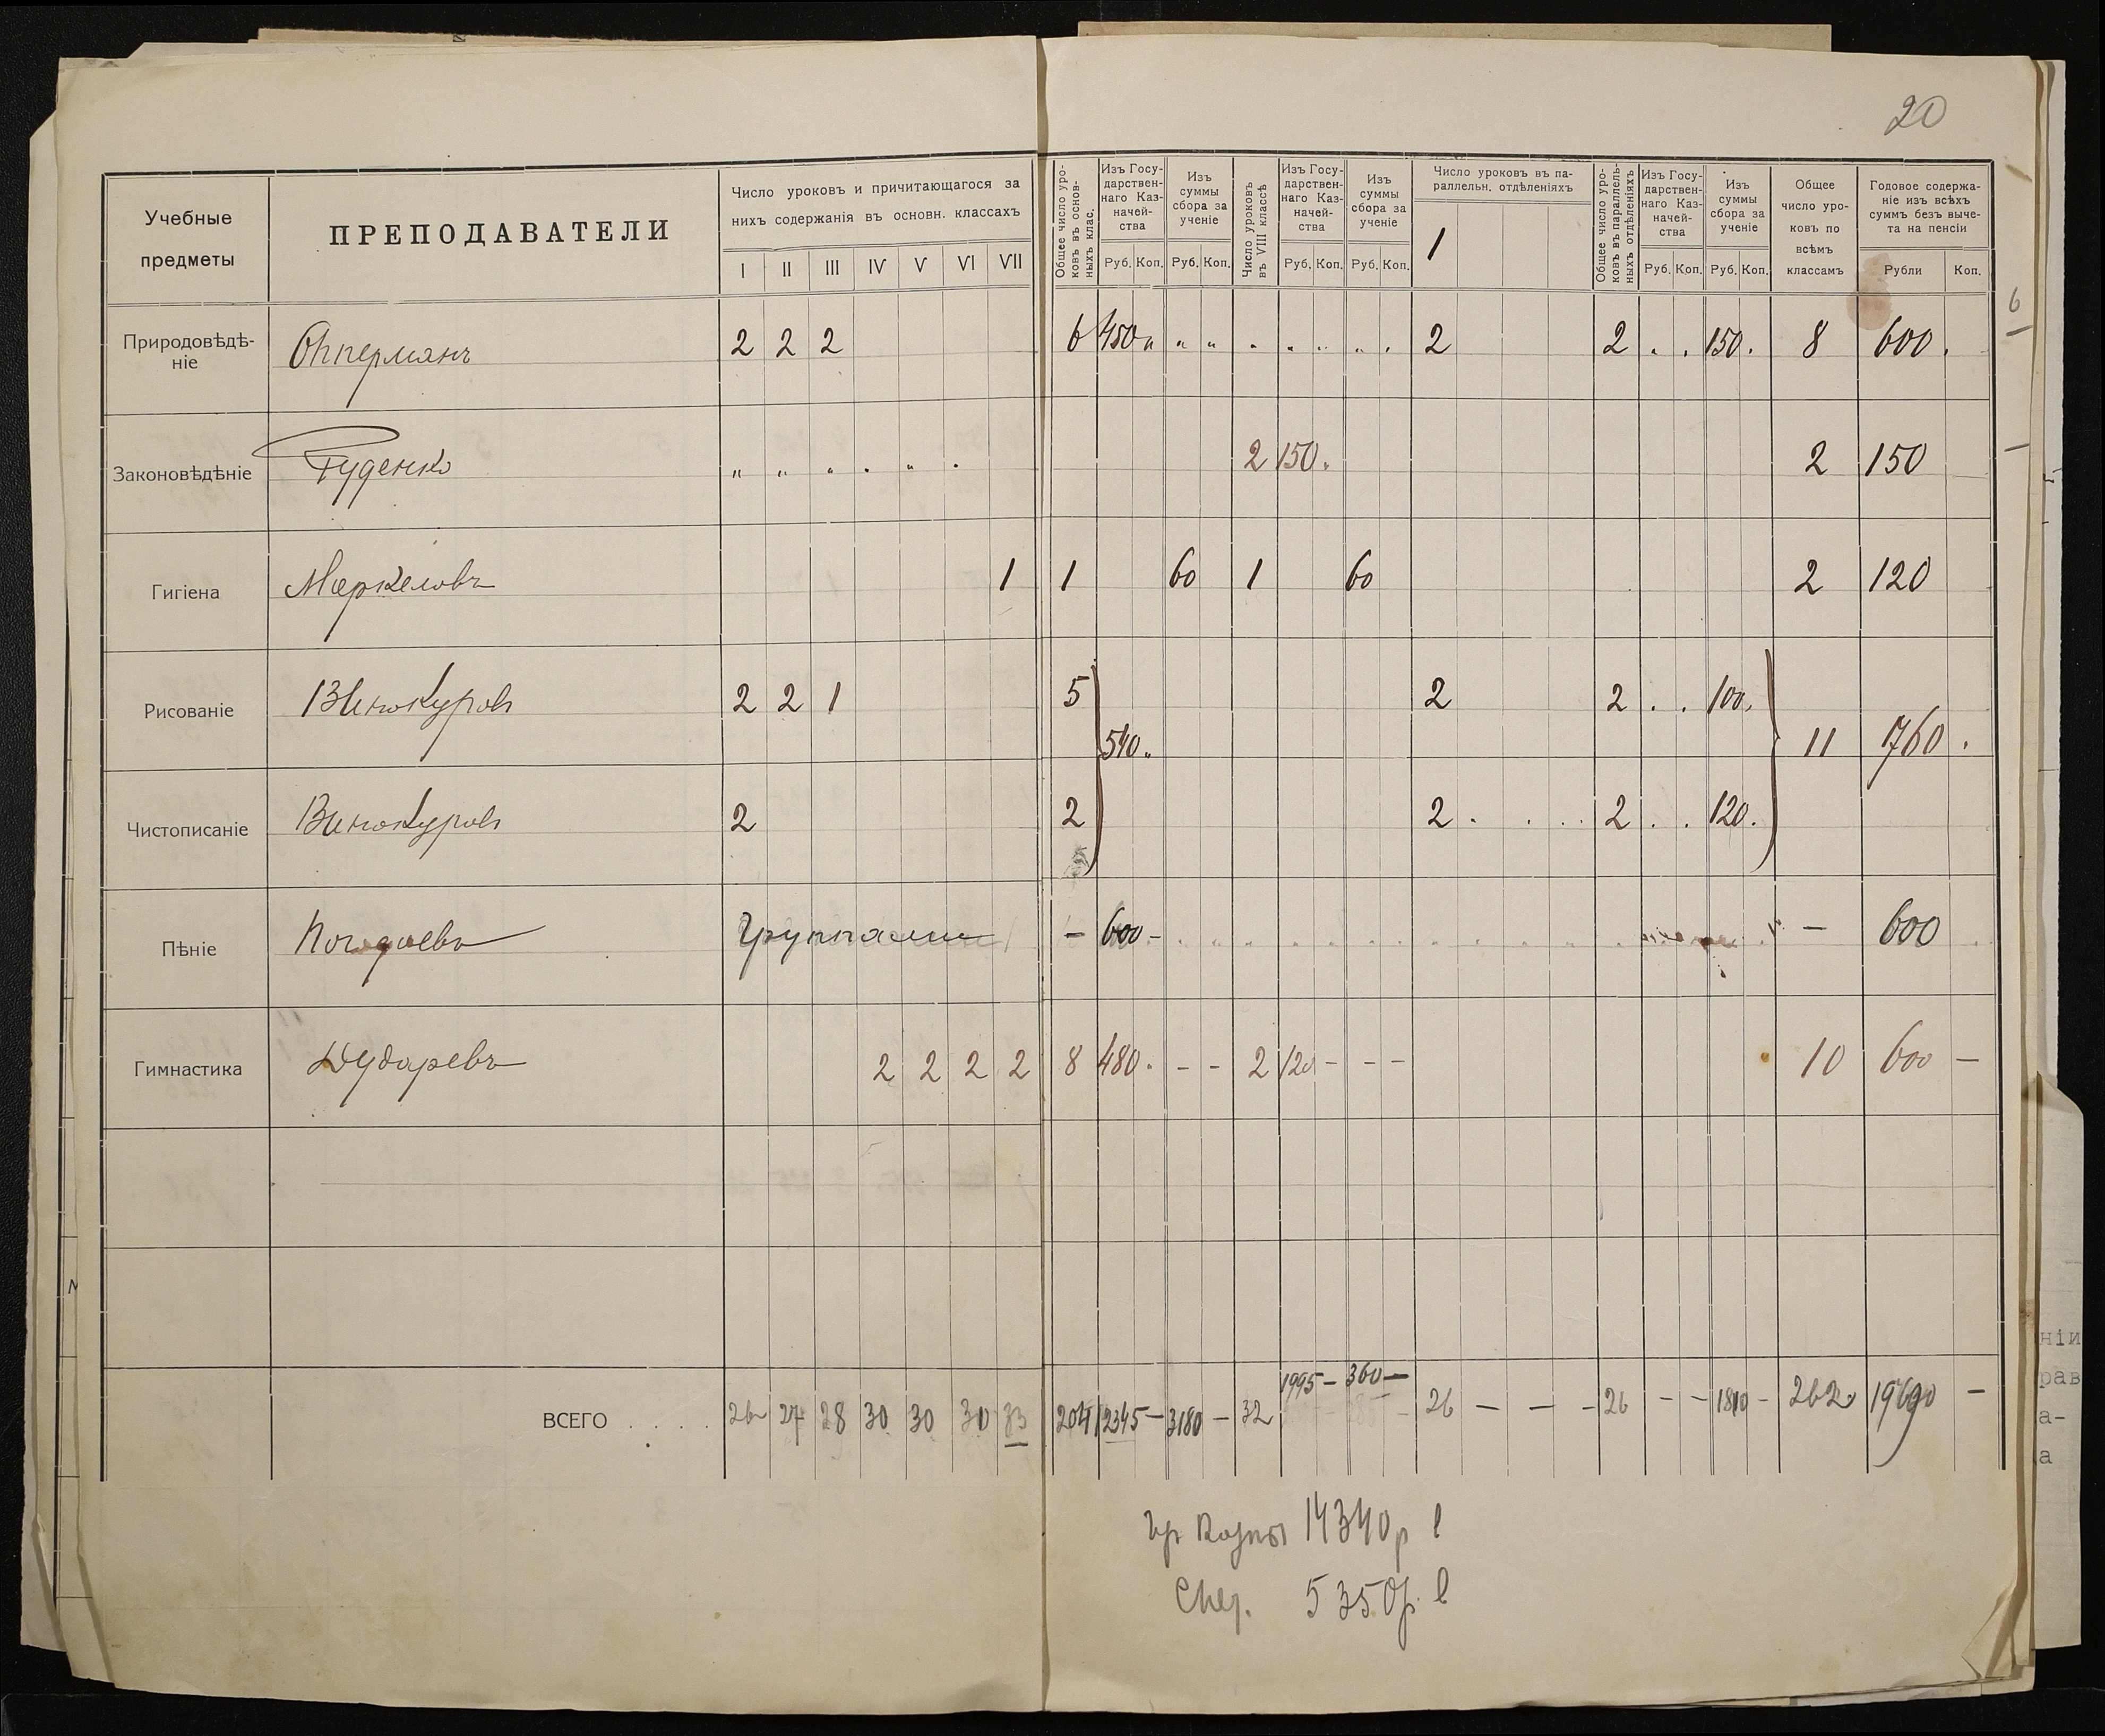 20
Учебные предметы
ПРЕПОДАВАТЕЛИ
Число уроковъ и причитающагося за нихъ содержанія въ основн. классахъ
I II III IV V VI VII
Общее число уроковъ въ основныхъ клас.
Изъ Государственнаго Казначейства
Руб. Коп.
Изъ суммы сбора за ученіе
Руб. Коп.
Число уроковъ въ VIII классѣ
Изъ Государственнаго Казначейства
Руб. Коп.
Изъ суммы сбора за ученіе
Руб. Коп.
Число уроковъ въ параллельн. отдѣленіяхъ
1
Общее число уроковъ въ параллельныхъ отдѣленіяхъ
Изъ Государственнаго Казначейства
Руб. Коп.
Изъ суммы сбора за ученіе
Руб. Коп.
Общее число уроковъ по всѣмъ классамъ
Годовое содержаніе изъ всѣхъ суммъ безъ вычета на пенсіи
Рубли Коп.
6
Природовѣдѣніе Опперманъ 2 2 2 6 450 " " " . . . . . . 2 2 . . 150. 8 600.
Законовѣдѣніе Руденко " " " . " . 2 150. 2 150
Гигіена Маркеловъ 1 1 60 1 60 2 120
Рисованіе Винокуровъ 2 2 1 5 2 2 . . 100.
540. 11 760.
Чистописаніе Винокуровъ 2 2 2 . . . . 2 . . 120.
Пѣніе Погодаевъ Группами — 600 — — 600
Гимнастика Дударевъ 2 2 2 2 8 480. - - 2 120 - - - 10 600 —
ВСЕГО . . . . 26 27 28 30 30 30 33 204 12345 — 3180 — 32 1995 — 360 — 26 — — — 26 — — 1810 — 262 19690 —
Казны 14340р
Спец. 5350р.
ніи
рав
а-
а